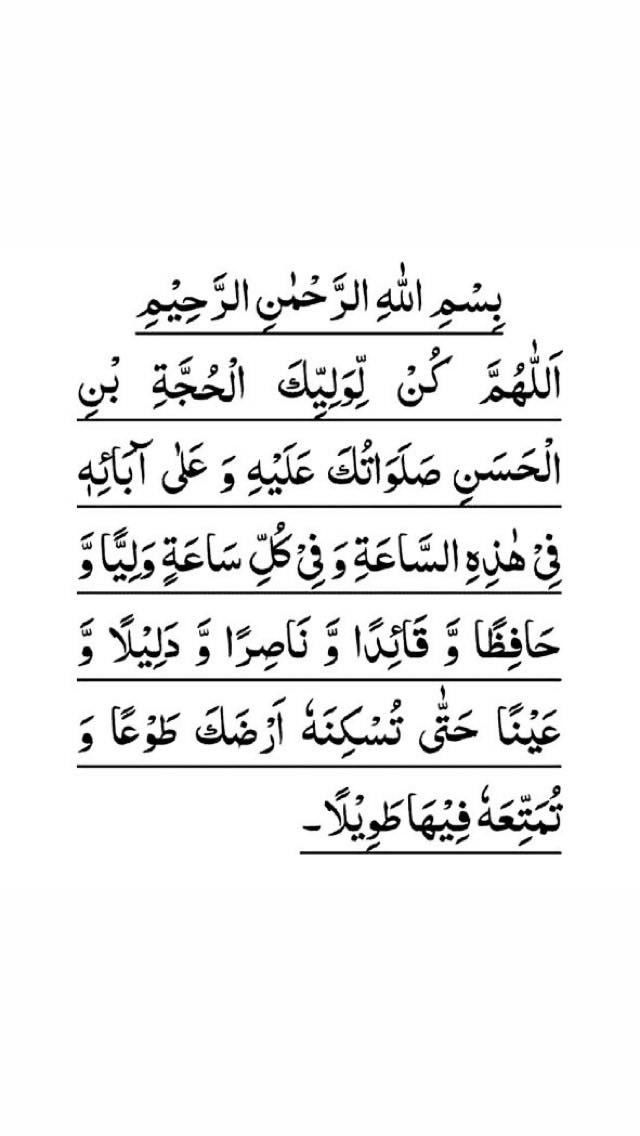 بِسْمِ اللهِ الرَّحْمٰنِ الرَّحِيْمِ
اَللّٰهُمَّ كُنْ لِّوَلِيِّكَ الْحُجَّةِ بْنِ
الْحَسَنِ صَلَوَاتُكَ عَلَيْهِ وَ عَلٰى آبَائِهٖ
فِيْ هٰذِهِ السَّاعَةِ وَ فِيْ كُلِّ سَاعَةٍ وَلِيًّا وَّ
حَافِظًا وَّ قَائِدًا وَّ نَاصِرًا وَّ دَلِيْلًا وَّ
عَيْنًا حَتّٰى تُسْكِنَهٗ اَرْضَكَ طَوْعًا وَ
تُمَتِّعَهٗ فِيْهَا طَوِيْلًا۔